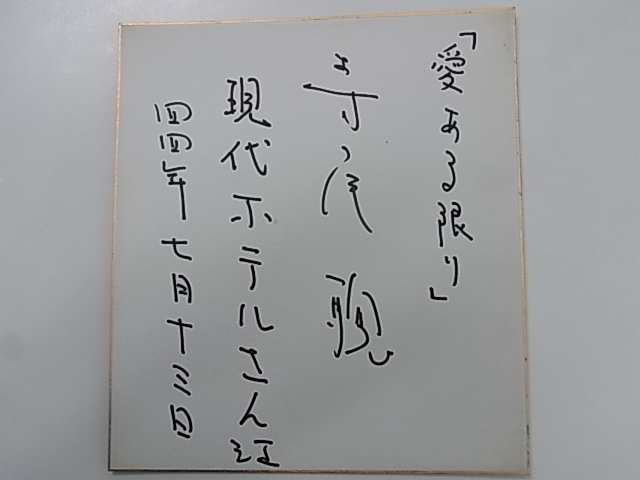 「愛ある限り」
現代ホテルさん江
四四年七月十三日